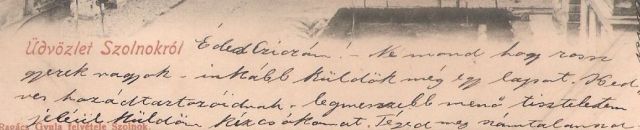 Üdvözlet Szolnokról
Édes Cziczám! - Ne mond hogy rossz
gyerek vagyok - inkább küldök még egy lapot. Ked,
ves hozzádtartozóidnak - legmesszebb menő tiszteletem
jeléül küldöm kézcsókomat. Téged meg számtalanszor
Ragács Gyula felvétele Szolnok.